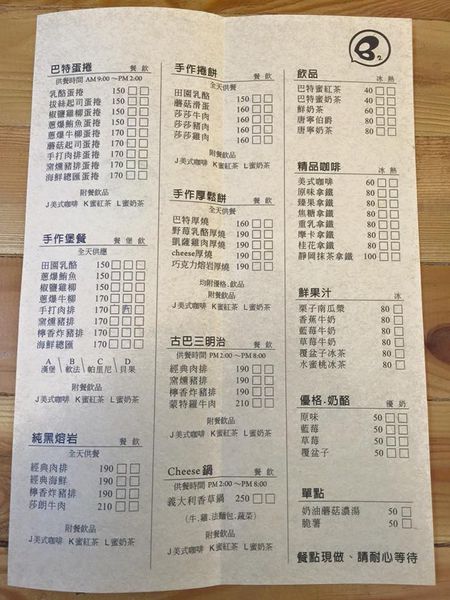 巴特蛋捲 餐 飲
供餐時間 AM 9:00～PM 2:00
乳酪蛋捲 150
拔絲起司蛋捲 150
椒鹽雞柳蛋捲 150
蔥爆鮪魚蛋捲 150
蔥爆牛柳蛋捲 170
蘑菇起司蛋捲 170
手打肉排蛋捲 170
窯燻豬排蛋捲 170
海鮮總匯蛋捲 170
附餐飲品
J美式咖啡 K蜜紅茶 L蜜奶茶
手作堡餐 餐 堡 飲
全天供應
田園乳酪 150
蔥爆鮪魚 150
椒鹽雞柳 150
蔥爆牛柳 170
手打肉排 170
窯燻豬排 170
檸香炸豬排 170
海鮮總匯 170
A B C D
漢堡 軟法 帕里尼 貝果
附餐飲品
J美式咖啡 K蜜紅茶 L蜜奶茶
純黑熔岩 餐 飲
全天供餐
經典肉排 190
經典海鮮 190
檸香炸豬排 190
莎朗牛肉 210
附餐飲品
J美式咖啡 K蜜紅茶 L蜜奶茶
手作捲餅 餐 飲
全天供餐
田園乳酪 150
蘑菇滑蛋 150
莎莎牛肉 150
莎莎豬肉 150
莎莎雞肉 150
附餐飲品
J美式咖啡 K蜜紅茶 L蜜奶茶
手作厚鬆餅 餐 飲
全天供餐
巴特厚燒 160
野莓乳酪厚燒 190
凱薩雞肉厚燒 190
cheese厚燒 190
巧克力熔岩厚燒 190
均附優格.飲品
J美式咖啡 K蜜紅茶 L蜜奶茶
古巴三明治 餐 飲
供餐時間 PM 2:00～PM 8:00
經典肉排 190
窯燻豬排 190
檸香炸豬排 190
蒙特羅牛肉 210
附餐飲品
J美式咖啡 K蜜紅茶 L蜜奶茶
Cheese 鍋 餐 飲
供餐時間 PM 2:00～PM 8:00
義大利香草鍋 250
(牛.雞.法麵包.蔬菜)
附餐飲品
J美式咖啡 K蜜紅茶 L蜜奶茶
B2
飲品 冰 熱
巴特蜜紅茶 40
巴特蜜奶茶 40
鮮奶茶 60
唐寧伯爵 80
唐寧奶茶 80
精品咖啡 冰 熱
美式咖啡 60
原味拿鐵 80
榛果拿鐵 80
焦糖拿鐵 80
重乳拿鐵 80
摩卡拿鐵 80
桂花拿鐵 80
靜岡抹茶拿鐵 100
鮮果汁 冰
栗子南瓜漿 80
香蕉牛奶 80
藍莓牛奶 80
草莓牛奶 80
覆盆子冰茶 80
水蜜桃冰茶 80
優格.奶酪 優 奶
原味 50
藍莓 50
草莓 50
覆盆子 50
單點
奶油蘑菇濃湯 50
脆薯 50
餐點現做、請耐心等待